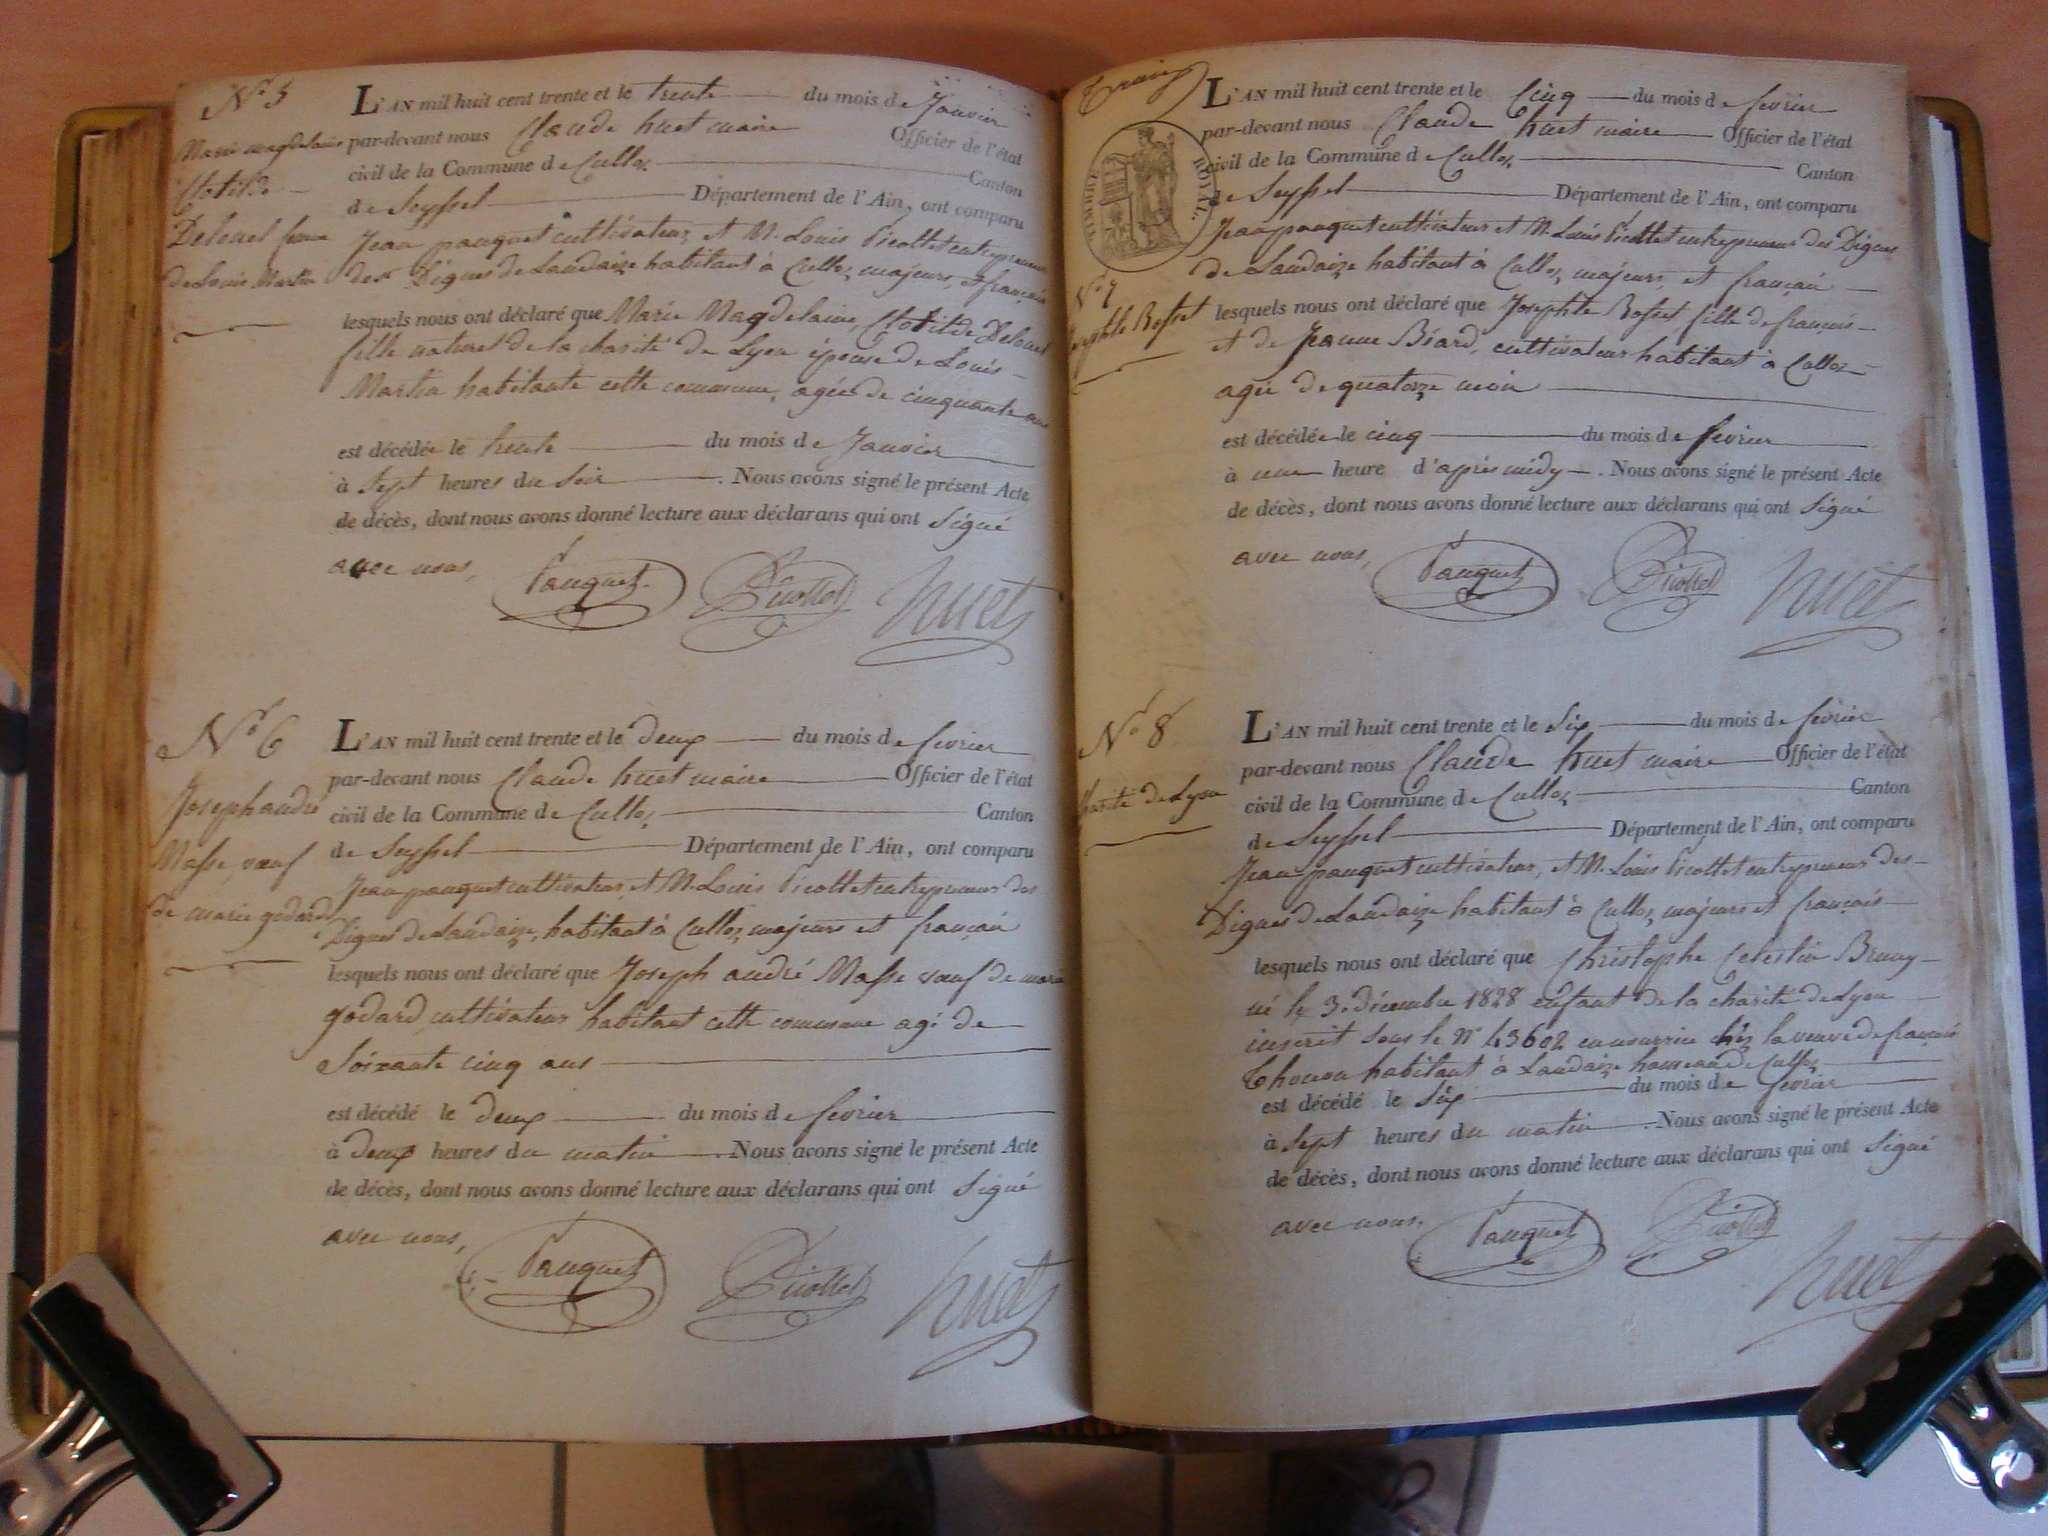 N.º 5
Marie magdelaine
Clotilde
Delouel femme
de Louis Martin
L'AN mil huit cent trente et le trente du mois de Janvier
par-devant nous Claude huet maire Officier de l'état
civil de la Commune de Culloz Canton
de Seyssel Département de l'Ain, ont comparu
Jean pauquet cultivateur, et M. Louis Picollet entrepreneur
des Digues de Landaize habitant à Culloz, majeurs, et français
lesquels nous ont déclaré que Marie Magdelaine, Clotilde Delouel
fille naturel de la charité de Lyon épouse de Louis
Martin habitante cette commune, agée de cinquante ans
est décédée le trente du mois de Janvier
à Sept heures du Soir. Nous avons signé le présent Acte
de décès, dont nous avons donné lecture aux déclarans qui ont Signé
avec nous,
Pauquet Picollet huet
N.º 6
Joseph andré
Masse, veuf
de marie godard
L'AN mil huit cent trente et le deux du mois de fevrier
par-devant nous Claude huet maire Officier de l'état
civil de la Commune de Culloz Canton
de Seyssel Département de l'Ain, ont comparu
Jean pauquet cultivateur, et M. Louis Picollet entrepreneur des
Digues de Landaize, habitant à Culloz, majeurs et français
lesquels nous ont déclaré que Joseph andré Masse veuf de marie
godard, cultivateur habitant cette commune agé de
Soixante cinq ans
est décédé le deux du mois de fevrier
à deux heures du matin. Nous avons signé le présent Acte
de décès, dont nous avons donné lecture aux déclarans qui ont Signé
avec nous,
Pauquet Picollet huet
TIMBRE ROYAL
N.º 7
Josephte Rosset
L'AN mil huit cent trente et le Cinq du mois de fevrier
par-devant nous Claude huet maire Officier de l'état
civil de la Commune de Culloz Canton
de Seyssel Département de l'Ain, ont comparu
Jean pauquet cultivateur et M. Louis Picollet entrepreneur des Digues
de Landaize habitant à Culloz, majeurs, et français
lesquels nous ont déclaré que Josephte Rosset, fille de françois
et de Jeanne Béard, cultivateur habitant à Culloz
agée de quatorze mois
est décédée le cinq du mois de fevrier
à une heure d'après midy. Nous avons signé le présent Acte
de décès, dont nous avons donné lecture aux déclarans qui ont Signé
avec nous,
Pauquet Picollet huet
N.º 8
Charité de Lyon
L'AN mil huit cent trente et le Six du mois de fevrier
par-devant nous Claude huet maire Officier de l'état
civil de la Commune de Culloz Canton
de Seyssel Département de l'Ain, ont comparu
Jean pauquet cultivateur, et M. Louis Picollet entrepreneur des
Digues de Landaize habitant à Culloz, majeurs et français
lesquels nous ont déclaré que Christophe Celestin Bruny
né le 3. décembre 1828 enfant de la charité de Lyon
inscrit sous le N.º 43602 en nourrice chez la veuve de françois
Thonon habitant à Landaize hameau de Culloz
est décédé le Six du mois de fevrier
à Sept heures du matin. Nous avons signé le présent Acte
de décès, dont nous avons donné lecture aux déclarans qui ont Signé
avec nous,
Pauquet Picollet huet